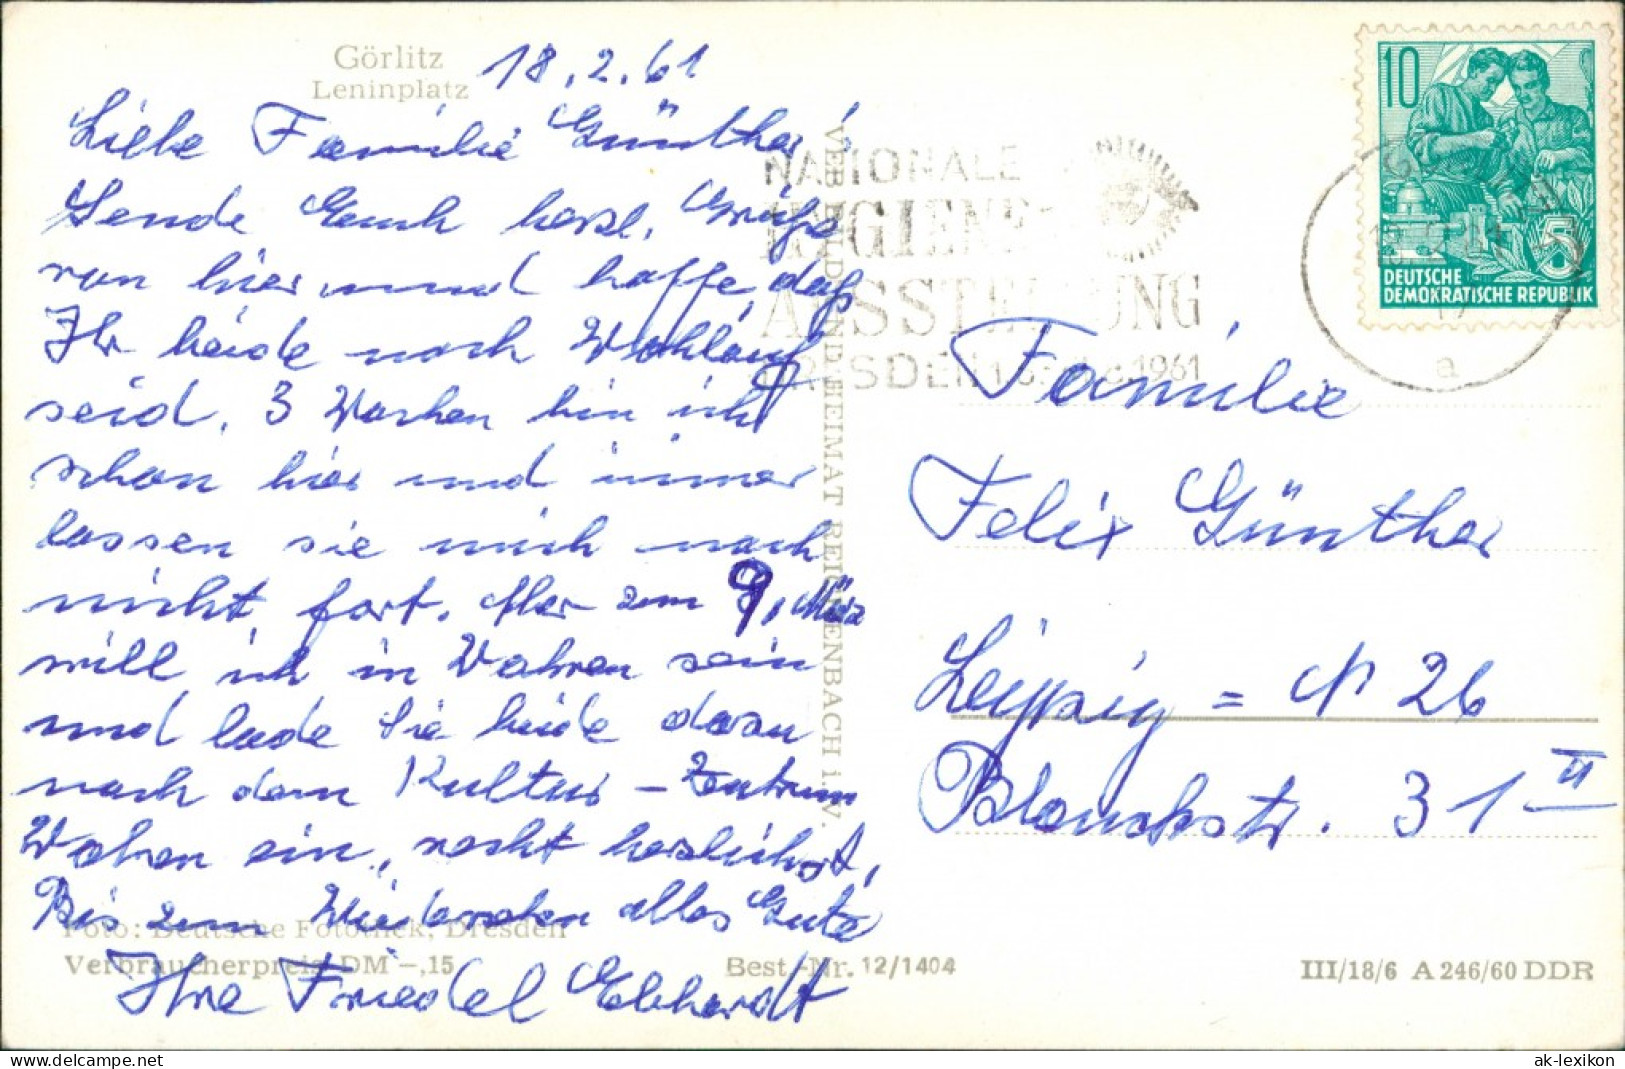 Görlitz
Leninplatz
18.2.61
Liebe Familie Günther!
Sende Euch herzl. Grüße
von hier und hoffe, daß
Ihr beide noch Wohlauf
seid. 3 Wochen bin ich
schon hier und immer
lassen sie mich noch
nicht fort. Aber zum 9. März
will ich in Wahren sein
und lade Sie beide dann
nach dem Kultur-Zentrum
Wahren ein, recht herzlichst,
Bis zum Wiedersehen alles Gute
Ihre Friedel Ebhardt
Foto: Deutsche Fotothek, Dresden
Verbraucherpreis DM -,15
Best.-Nr. 12/1404
III/18/6 A 246/60 DDR
VEB BILD UND HEIMAT REICHENBACH i. V.
NATIONALE
HYGIENE
AUSSTELLUNG
DRESDEN 1961
a
10
5
DEUTSCHE
DEMOKRATISCHE REPUBLIK
Familie
Felix Günther
Leipzig = N 26
Blauckstr. 31 II
ak-ansichtskarten.de
ak-lexikon